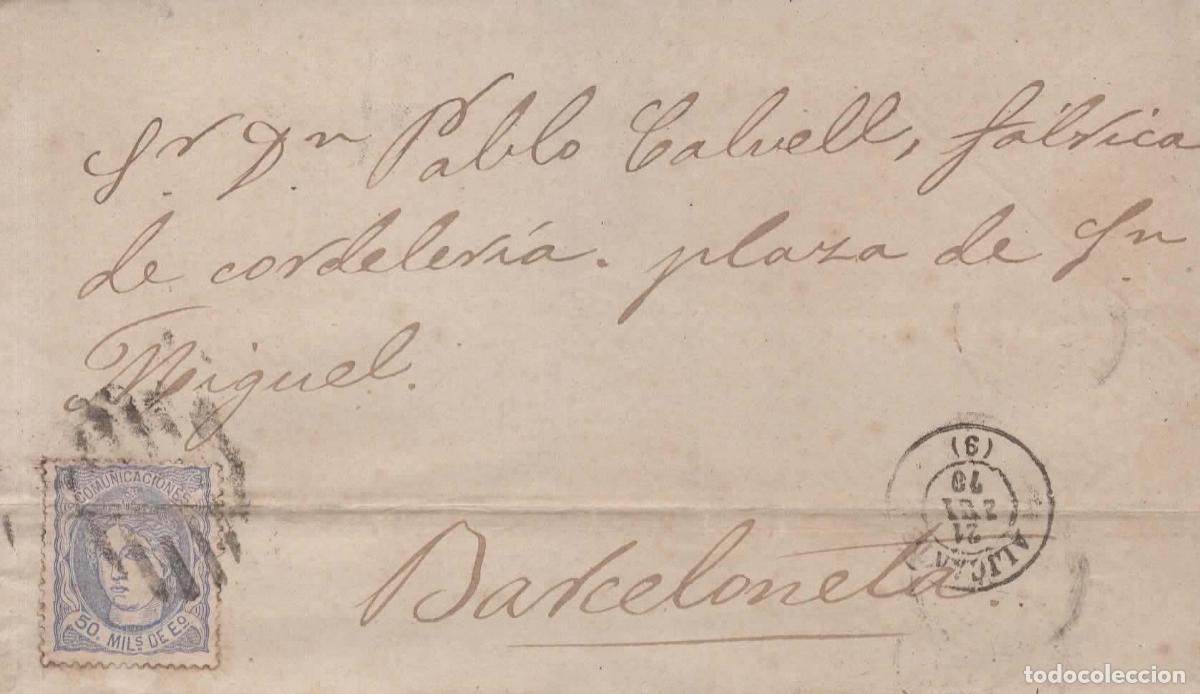 Sr. Dn Pablo Calvell, fábrica
de cordelería. plaza de Sn
Miguel.
Barceloneta.
COMUNICACIONES
50. MILS. DE EO.
ALICANTE
21
70
(3)
todocoleccion